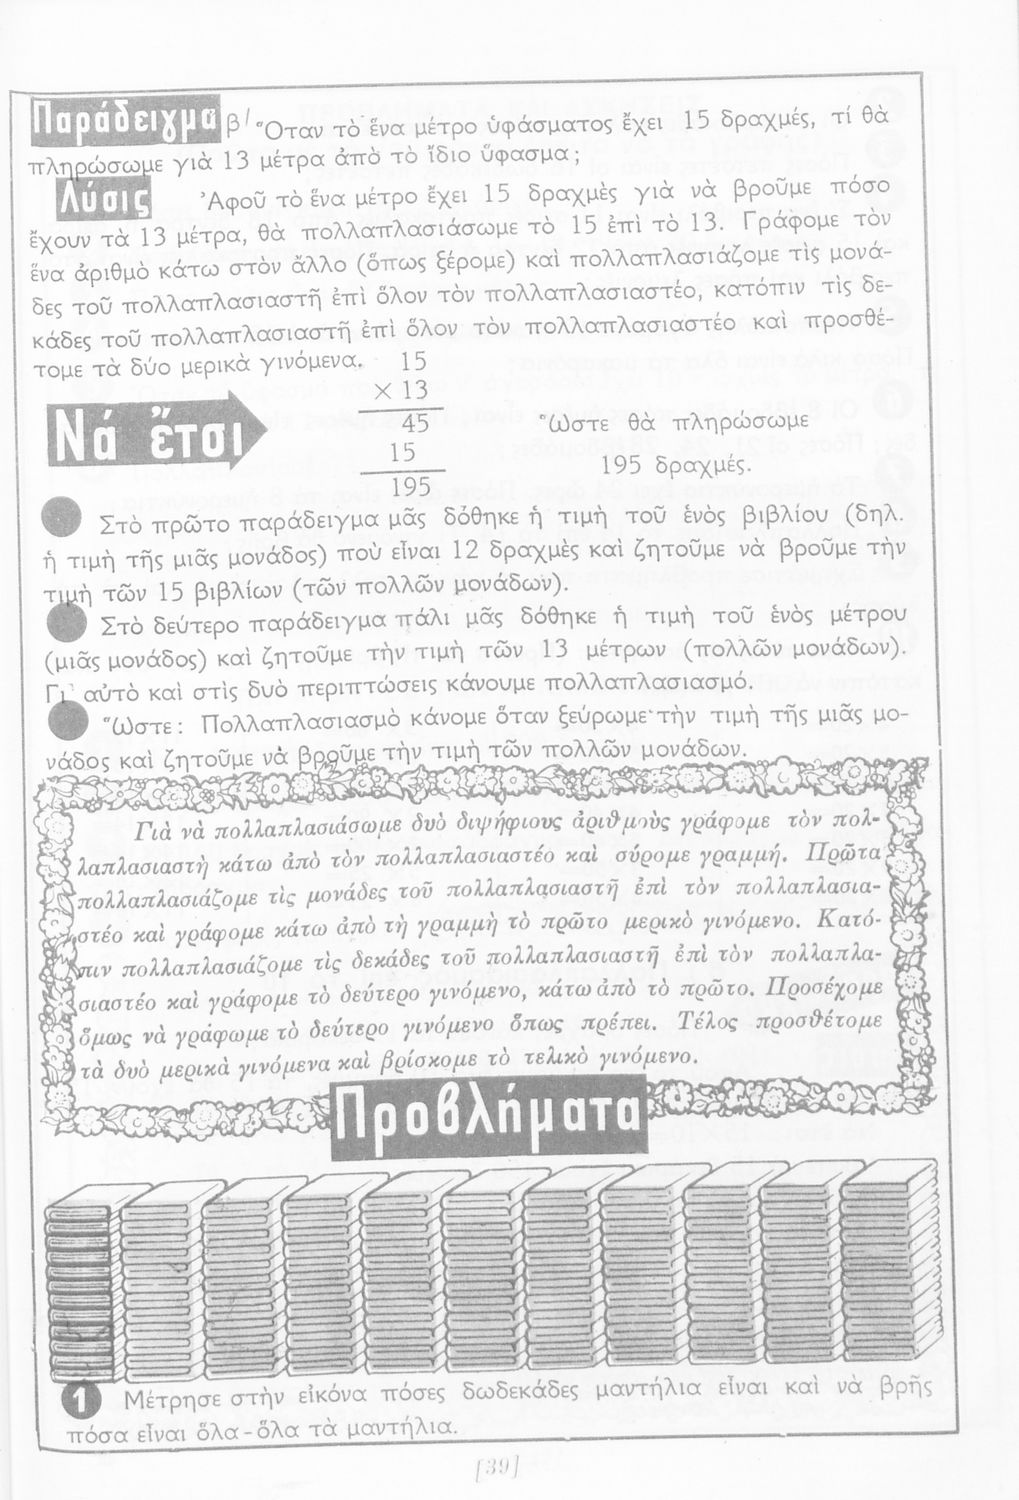 Παράδειγμα β΄ Ὅταν τὸ ἕνα μέτρο ὑφάσματος ἔχει 15 δραχμές, τί θὰ
πληρώσωμε γιὰ 13 μέτρα ἀπὸ τὸ ἴδιο ὕφασμα;
Λύσις Ἀφοῦ τὸ ἕνα μέτρο ἔχει 15 δραχμὲς γιὰ νὰ βροῦμε πόσο
ἔχουν τὰ 13 μέτρα, θὰ πολλαπλασιάσωμε τὸ 15 ἐπὶ τὸ 13. Γράφομε τὸν
ἕνα ἀριθμὸ κάτω στὸν ἄλλο (ὅπως ξέρομε) καὶ πολλαπλασιάζομε τὶς μονά-
δες τοῦ πολλαπλασιαστῆ ἐπὶ ὅλον τὸν πολλαπλασιαστέο, κατόπιν τὶς δε-
κάδες τοῦ πολλαπλασιαστῆ ἐπὶ ὅλον τὸν πολλαπλασιαστέο καὶ προσθέ-
τομε τὰ δύο μερικὰ γινόμενα. 15
× 13
Νά ἔτσι 45 Ὥστε θὰ πληρώσωμε
15 195 δραχμές.
195
Στὸ πρῶτο παράδειγμα μᾶς δόθηκε ἡ τιμὴ τοῦ ἑνὸς βιβλίου (δηλ.
ἡ τιμὴ τῆς μιᾶς μονάδος) ποὺ εἶναι 12 δραχμὲς καὶ ζητοῦμε νὰ βροῦμε τὴν
τιμὴ τῶν 15 βιβλίων (τῶν πολλῶν μονάδων).
Στὸ δεύτερο παράδειγμα πάλι μᾶς δόθηκε ἡ τιμὴ τοῦ ἑνὸς μέτρου
(μιᾶς μονάδος) καὶ ζητοῦμε τὴν τιμὴ τῶν 13 μέτρων (πολλῶν μονάδων).
Γι' αὐτὸ καὶ στὶς δυὸ περιπτώσεις κάνουμε πολλαπλασιασμό.
Ὥστε: Πολλαπλασιασμὸ κάνομε ὅταν ξεύρωμε τὴν τιμὴ τῆς μιᾶς μο-
νάδος καὶ ζητοῦμε νὰ βροῦμε τὴν τιμὴ τῶν πολλῶν μονάδων.
Γιὰ νὰ πολλαπλασιάσωμε δυὸ διψήφιους ἀριθμοὺς γράφομε τὸν πολ-
λαπλασιαστὴ κάτω ἀπὸ τὸν πολλαπλασιαστέο καὶ σύρομε γραμμή. Πρῶτα
πολλαπλασιάζομε τὶς μονάδες τοῦ πολλαπλασιαστῆ ἐπὶ τὸν πολλαπλασια-
στέο καὶ γράφομε κάτω ἀπὸ τὴ γραμμὴ τὸ πρῶτο μερικὸ γινόμενο. Κατό-
πιν πολλαπλασιάζομε τὶς δεκάδες τοῦ πολλαπλασιαστῆ ἐπὶ τὸν πολλαπλα-
σιαστέο καὶ γράφομε τὸ δεύτερο γινόμενο, κάτω ἀπὸ τὸ πρῶτο. Προσέχομε
ὅμως νὰ γράφωμε τὸ δεύτερο γινόμενο ὅπως πρέπει. Τέλος προσθέτομε
τὰ δυὸ μερικὰ γινόμενα καὶ βρίσκομε τὸ τελικὸ γινόμενο.
Προβλήματα
1 Μέτρησε στὴν εἰκόνα πόσες δωδεκάδες μαντήλια εἶναι καὶ νὰ βρῆς
πόσα εἶναι ὅλα-ὅλα τὰ μαντήλια.
[39]